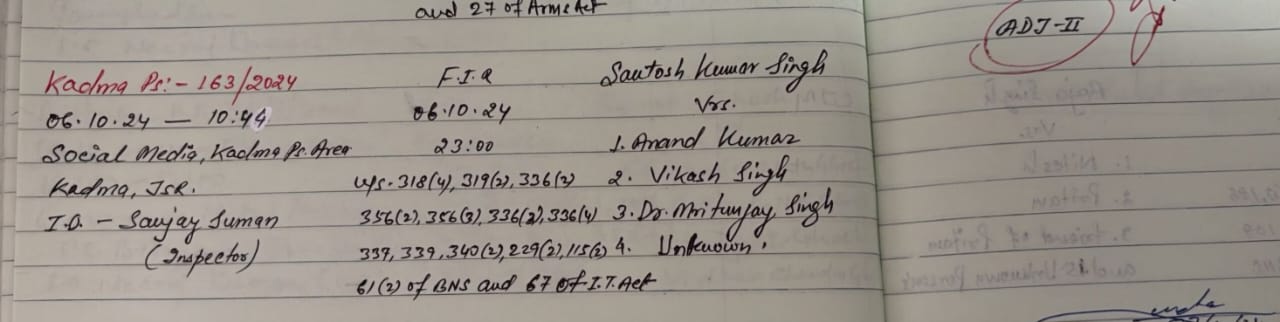 and 27 of Arms Act
ADJ-II
Kadma Ps:- 163/2024 F.I.R Santosh Kumar Singh
06.10.24 — 10:44 06.10.24 Vrs.
Social Media, Kadma Ps. Area 23:00 1. Anand Kumar
Kadma, JSR. u/s. 318(4), 319(2), 336(2) 2. Vikash Singh
I.O. - Sanjay Suman 356(2), 356(3), 336(2), 336(4) 3. Dr. Mritunjay Singh
(Inspector) 337, 339, 340(2), 229(2), 115(2) 4. Unknown.
61(2) of BNS and 67 of I.T. Act